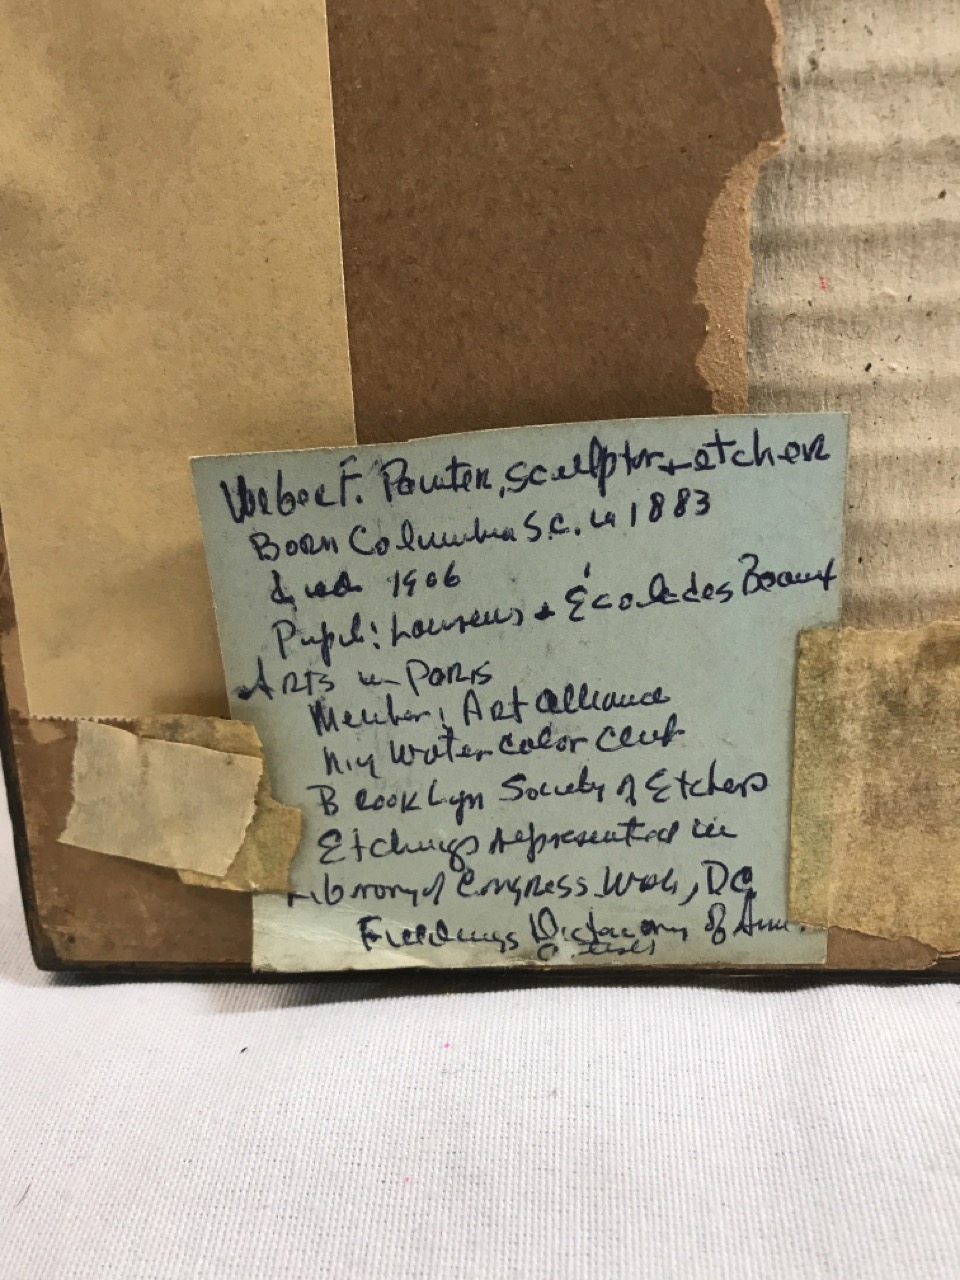 Weber F. Painter, sculptor + etcher
Born Columbia S.C. in 1883
died 1906
Pupil: Laurens + École des Beaux
Arts in Paris
Member: Art Alliance
N.Y Water Color Club
Brooklyn Society of Etchers
Etchings represented in
Library of Congress Wash, DC
Fieldings Dictionary of Am.